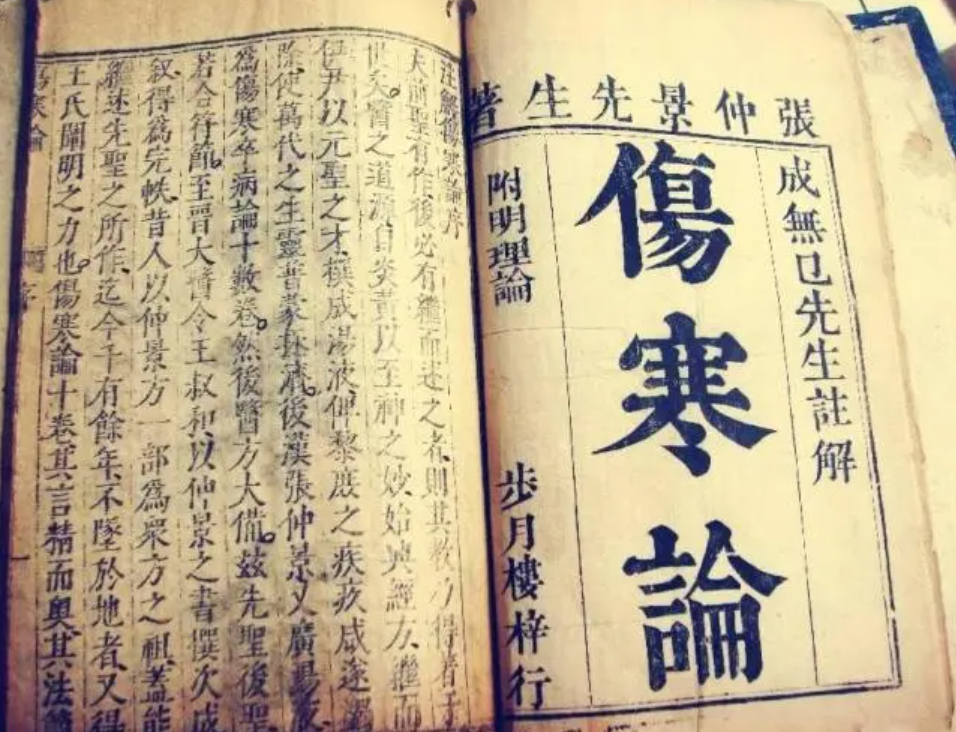 張仲景先生著
成無已先生註解
傷寒論
附明理論
步月樓梓行
注解傷寒論序
夫前聖有作後必有繼而述之者則其教乃得著于
世矣。醫之道源自炎黃以至神之妙始興經方繼而
伊尹以元聖之才撰成湯液俾黎庶之疾疚咸遂蠲
除使萬代之生靈普蒙拯濟。後漢張仲景又廣湯液
爲傷寒卒病論十數卷。然後醫方大備。茲先聖後聖
若合符節。至晉大醫令王叔和以仲景之書撰次成
叙得爲完帙昔人以仲景方一部爲衆方之祖蓋能
繼述先聖之所作迄今千有餘年不墜於地者又得
王氏闡明之力也。傷寒論十卷其言精而奥其法簡
傷寒論
序